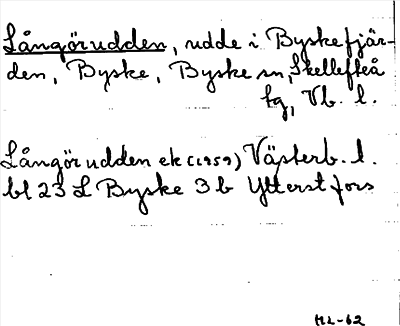 Långörudden, udde i Byskefjär-
den, Byske, Byske sn, Skellefteå
tg, Vb. l.
Långörudden ek (1959) Västerb. l.
bl 23 L Byske 3 b Ytterstfors
HL-62